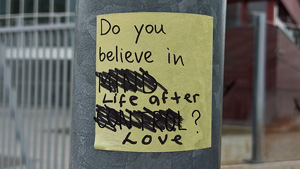 Do you
believe in
Life after
?
Love